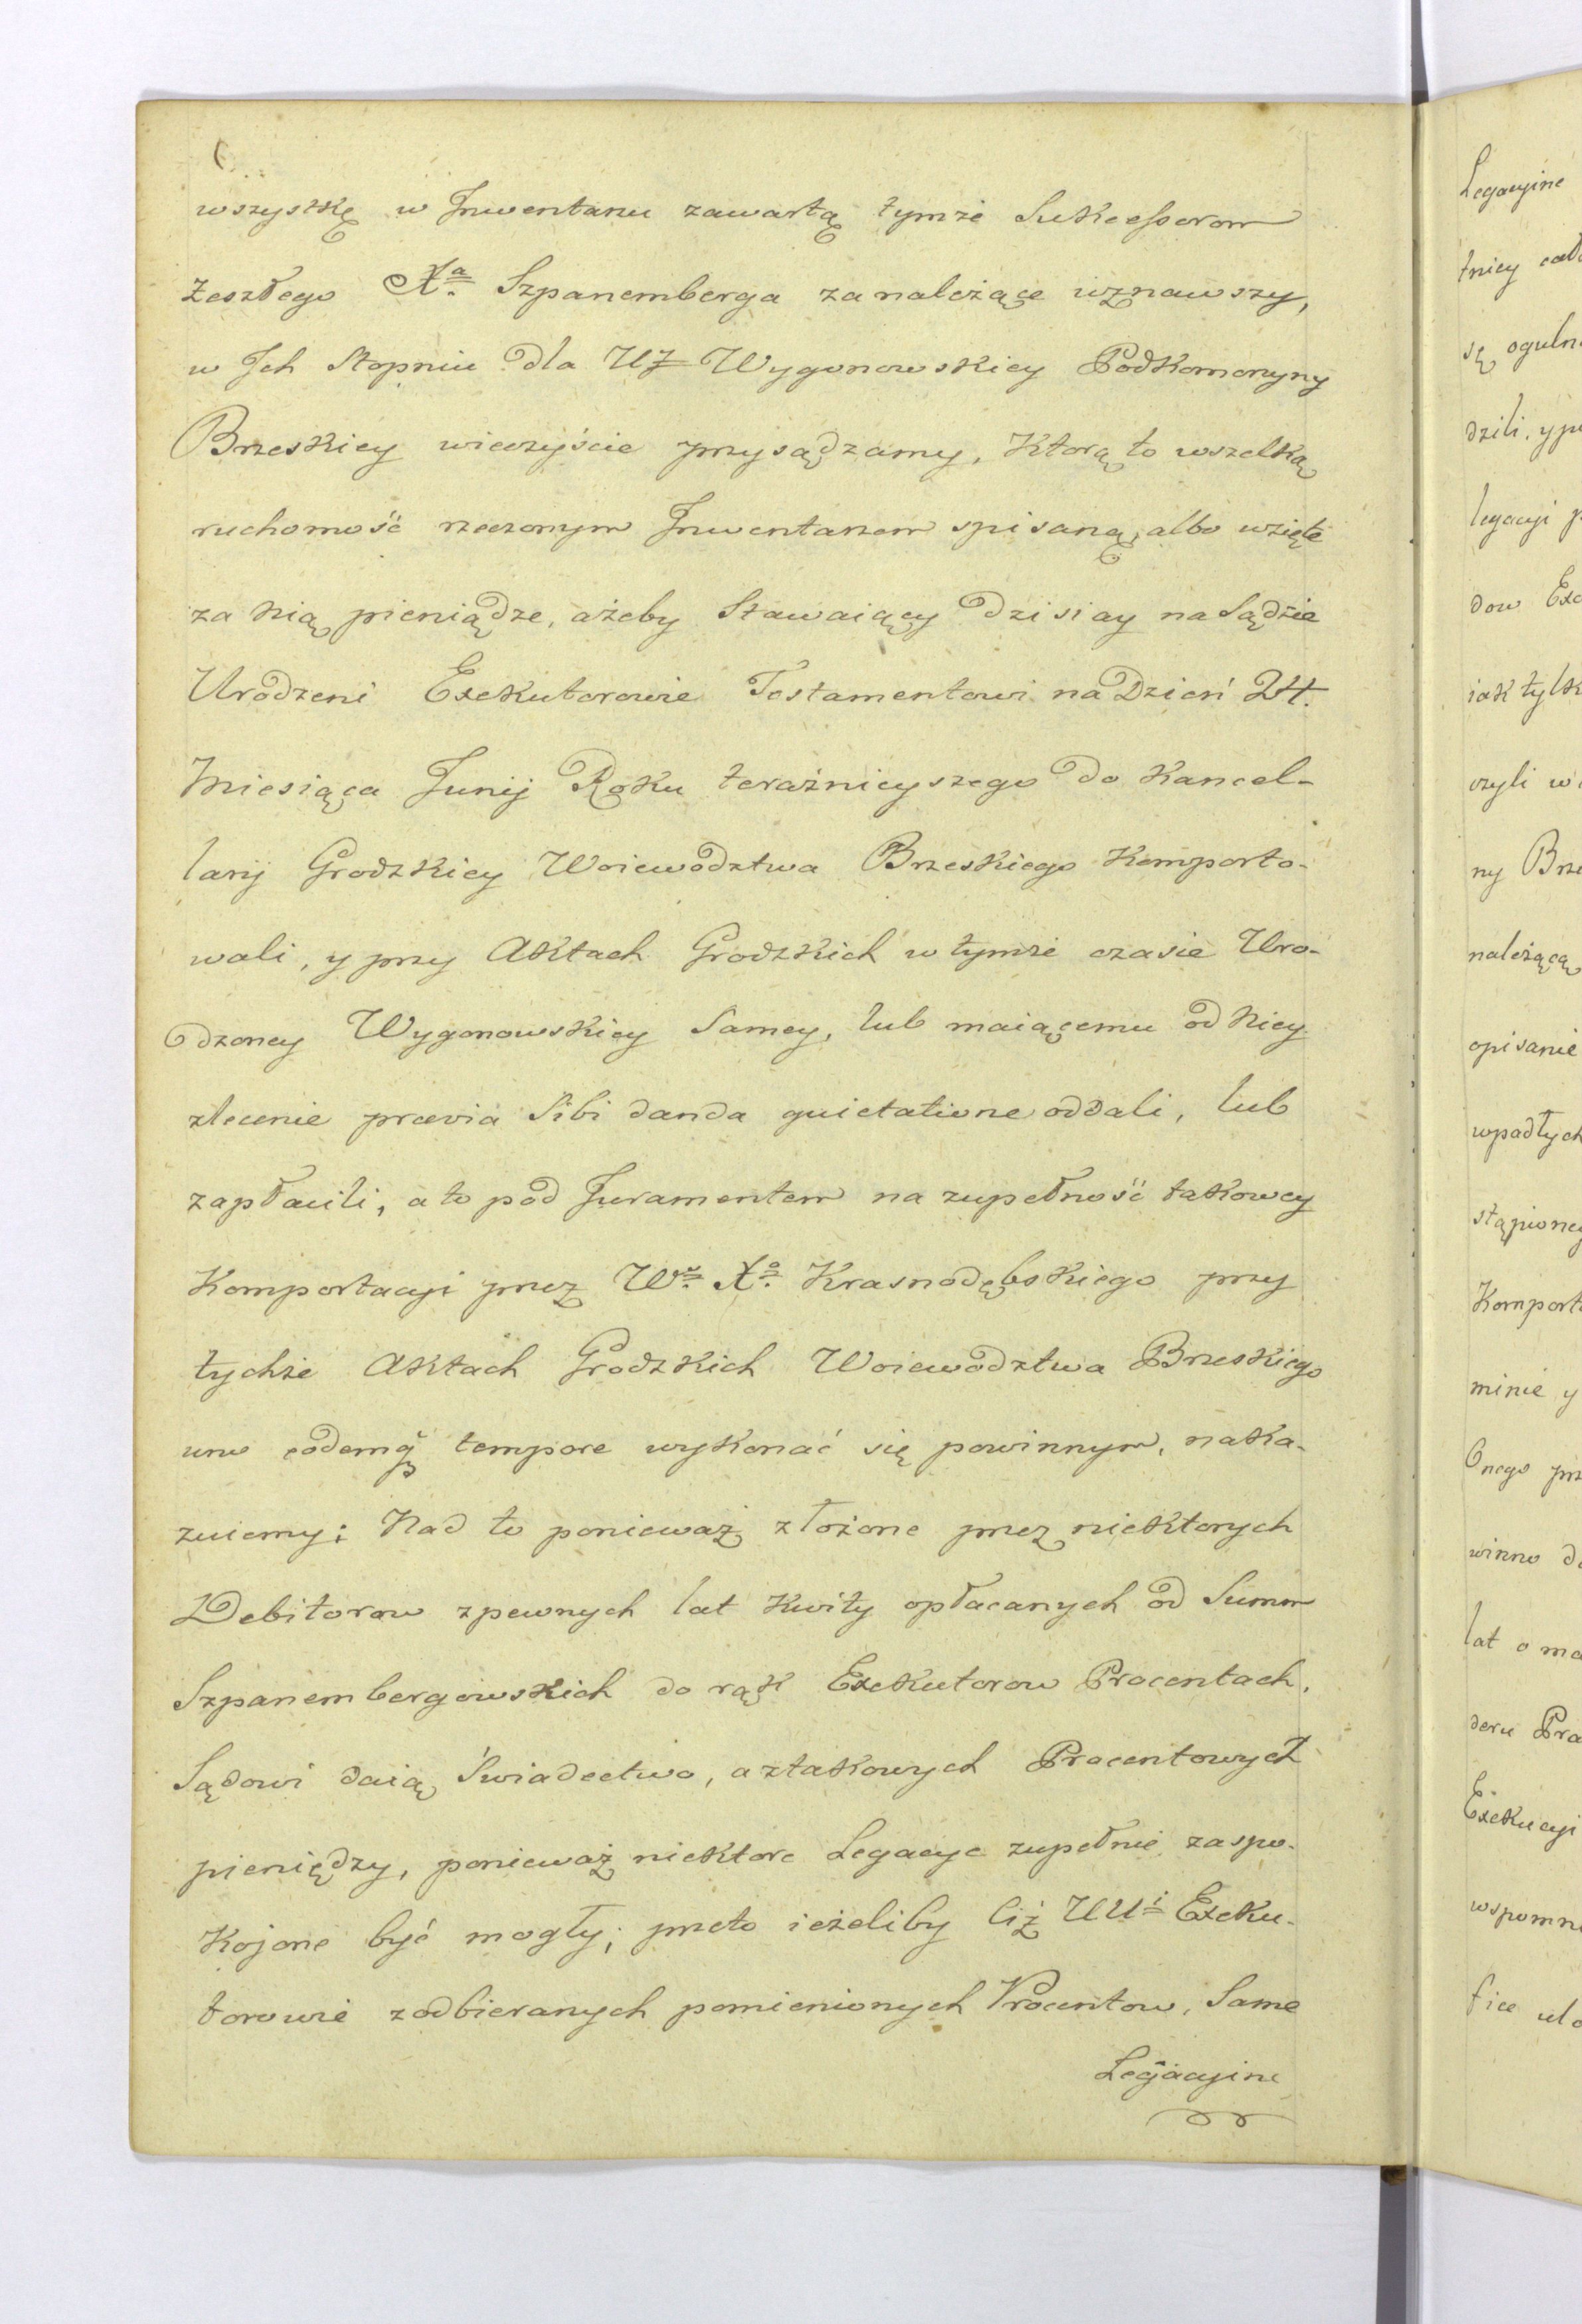 6..
wszystkę w Inwentaru zawartą tymże Sukcessorom
zeszłego Xa. Szpanemberga za należące uznawszy,
w Ich Stopniu dla UJ Wygonowskiey Podkomorzyny
Brzeskiey wieczyście przysądzamy, Ktorą to wszelką
ruchomość rzeczonym Inwentarzem spisaną, albo wzięte
za nią pieniądze, ażeby Stawaiący dzisiay na Sądzie
Urodzeni Exekutorowie Testamentowi na Dzień 24.
Miesiąca Junij Roku teraźnieyszego do Kancel-
larij Grodzkiey Woiewodztwa Brzeskiego Komporto-
wali, y przy Aktach Grodzkich w tymże czasie Uro-
dzoney Wygonowskiey Samey, lub maiącemu od Niey
zlecenie prævia Sibi danda quietatione oddali, lub
zapłacili, a to pod Juramentem na zupełność takowey
Komportacyi przez Wo. Xa. Krasnodębskiego przy
tychże Aktach Grodzkich Woiewodztwa Brzeskiego
uno eodemq3 tempore wykonać się powinnym, naka-
zuiemy; Nad to ponieważ złożone przez niektorych
Debitorow z pewnych lat Kwity opłacanych od Summ
Szpanembergowskich do rąk Exekutorow Procentach,
Sądowi daią Swiadectwo, a z takowych Procentowych
pieniędzy, ponieważ niektore Legacye zupełnie zaspo-
kojone być mogły; przeto ieżeliby Ciż UUi Exeku-
torowie z odbieranych pomienionych Procentow, Same
Legacyine
Legacyine
tniey
są ogulni
dzili, y
legacyi
dow
iak tylk
czyli
ny Brze
należącą
opisanie
wpadłych
stąpioney
Komport
minie y
Onego
winno
lat o
deru
Exekucyi
wspomn